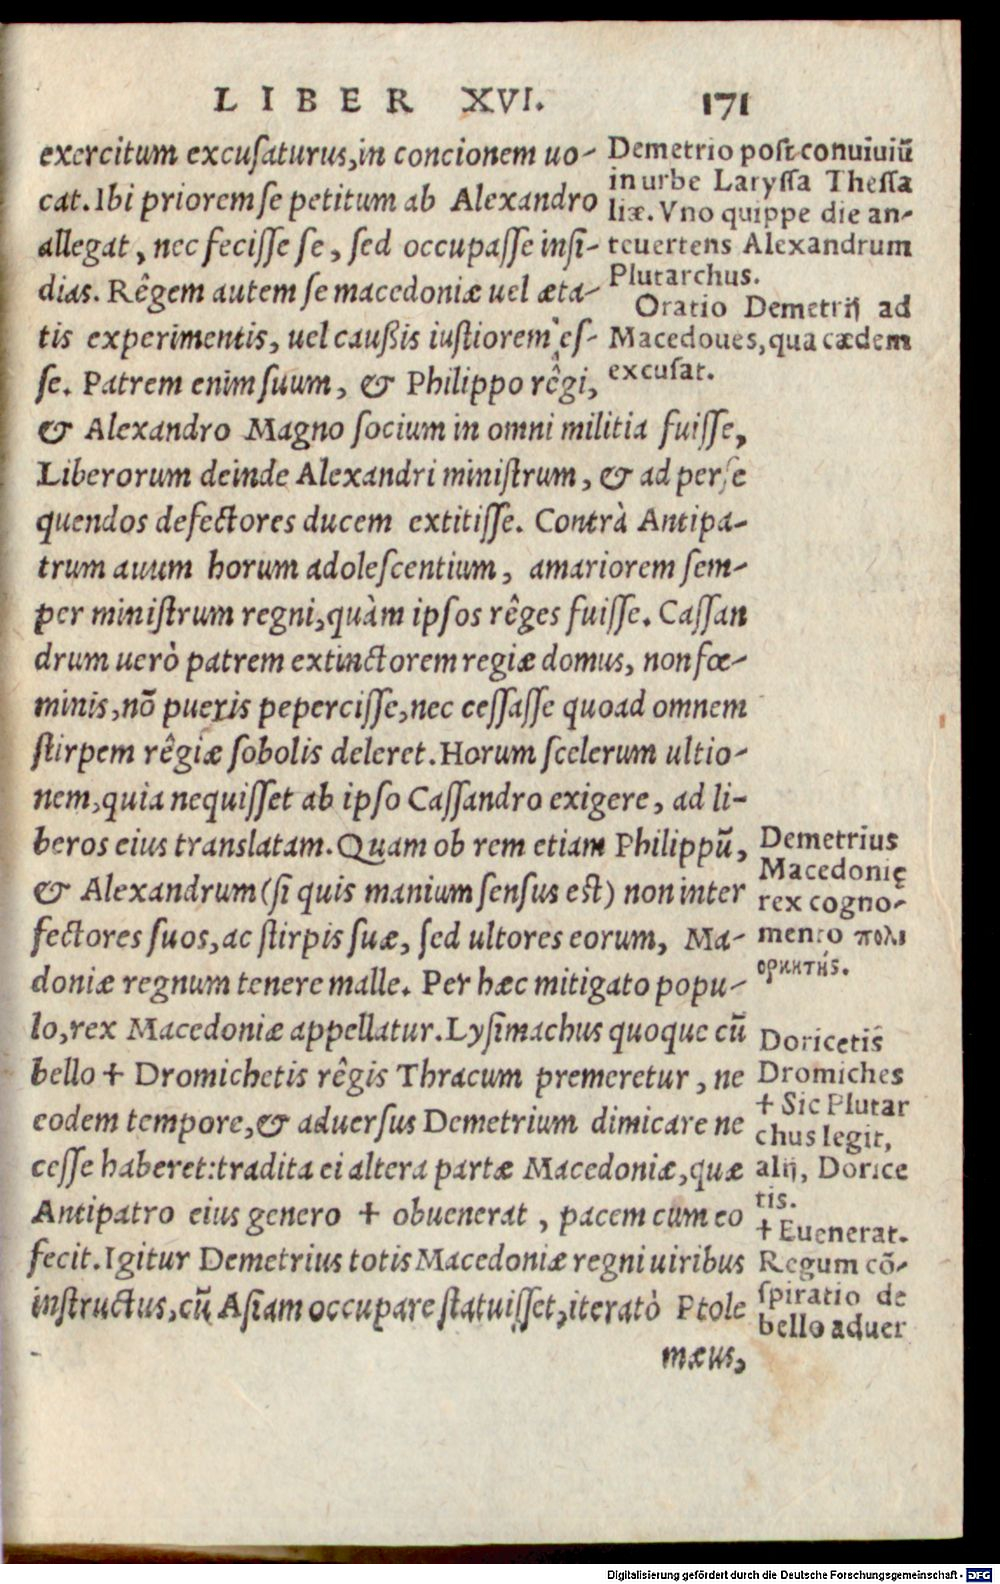 LIBER XVI. 171
exercitum excusaturus, in concionem uo-
cat. Ibi priorem se petitum ab Alexandro
allegat, nec fecisse se, sed occupasse insi-
dias. Rêgem autem se macedoniæ uel æta-
tis experimentis, uel caußis iustiorem es-
se. Patrem enim suum, & Philippo rêgi,
& Alexandro Magno socium in omni militia fuisse,
Liberorum deinde Alexandri ministrum, & ad perse
quendos defectores ducem extitisse. Contrà Antipa-
trum auum horum adolescentium, amariorem sem-
per ministrum regni, quàm ipsos rêges fuisse. Cassan
drum uerò patrem extinctorem regiæ domus, non fœ-
minis, nō pueris pepercisse, nec cessasse quoad omnem
stirpem rêgiæ sobolis deleret. Horum scelerum ultio-
nem, quia nequisset ab ipso Cassandro exigere, ad li-
beros eius translatam. Quam ob rem etiam Philippū,
& Alexandrum (si quis manium sensus est) non inter
fectores suos, ac stirpis suæ, sed ultores eorum, Ma-
doniæ regnum tenere malle. Per hæc mitigato popu-
lo, rex Macedoniæ appellatur. Lysimachus quoque cū
bello + Dromichetis rêgis Thracum premeretur, ne
eodem tempore, & aduersus Demetrium dimicare ne
cesse haberet: tradita ei altera partæ Macedoniæ, quæ
Antipatro eius genero + obuenerat, pacem cum eo
fecit. Igitur Demetrius totis Macedoniæ regni uiribus
instructus, cū Asiam occupare statuisset, iteratò Ptole
mæus,
Demetrio post conuiuiū
in urbe Laryssa Thessa
liæ. Vno quippe die an-
teuertens Alexandrum
Plutarchus.
Oratio Demetrij ad
Macedoues, qua cædem
excusat.
Demetrius
Macedonię
rex cogno-
mento πολι
ορκητής.
Doricetis
Dromiches
+ Sic Plutar
chus legit,
alij, Dorice
tis.
+ Euenerat.
Regum cō-
spiratio de
bello aduer
Digitalisierung gefördert durch die Deutsche Forschungsgemeinschaft - DFG